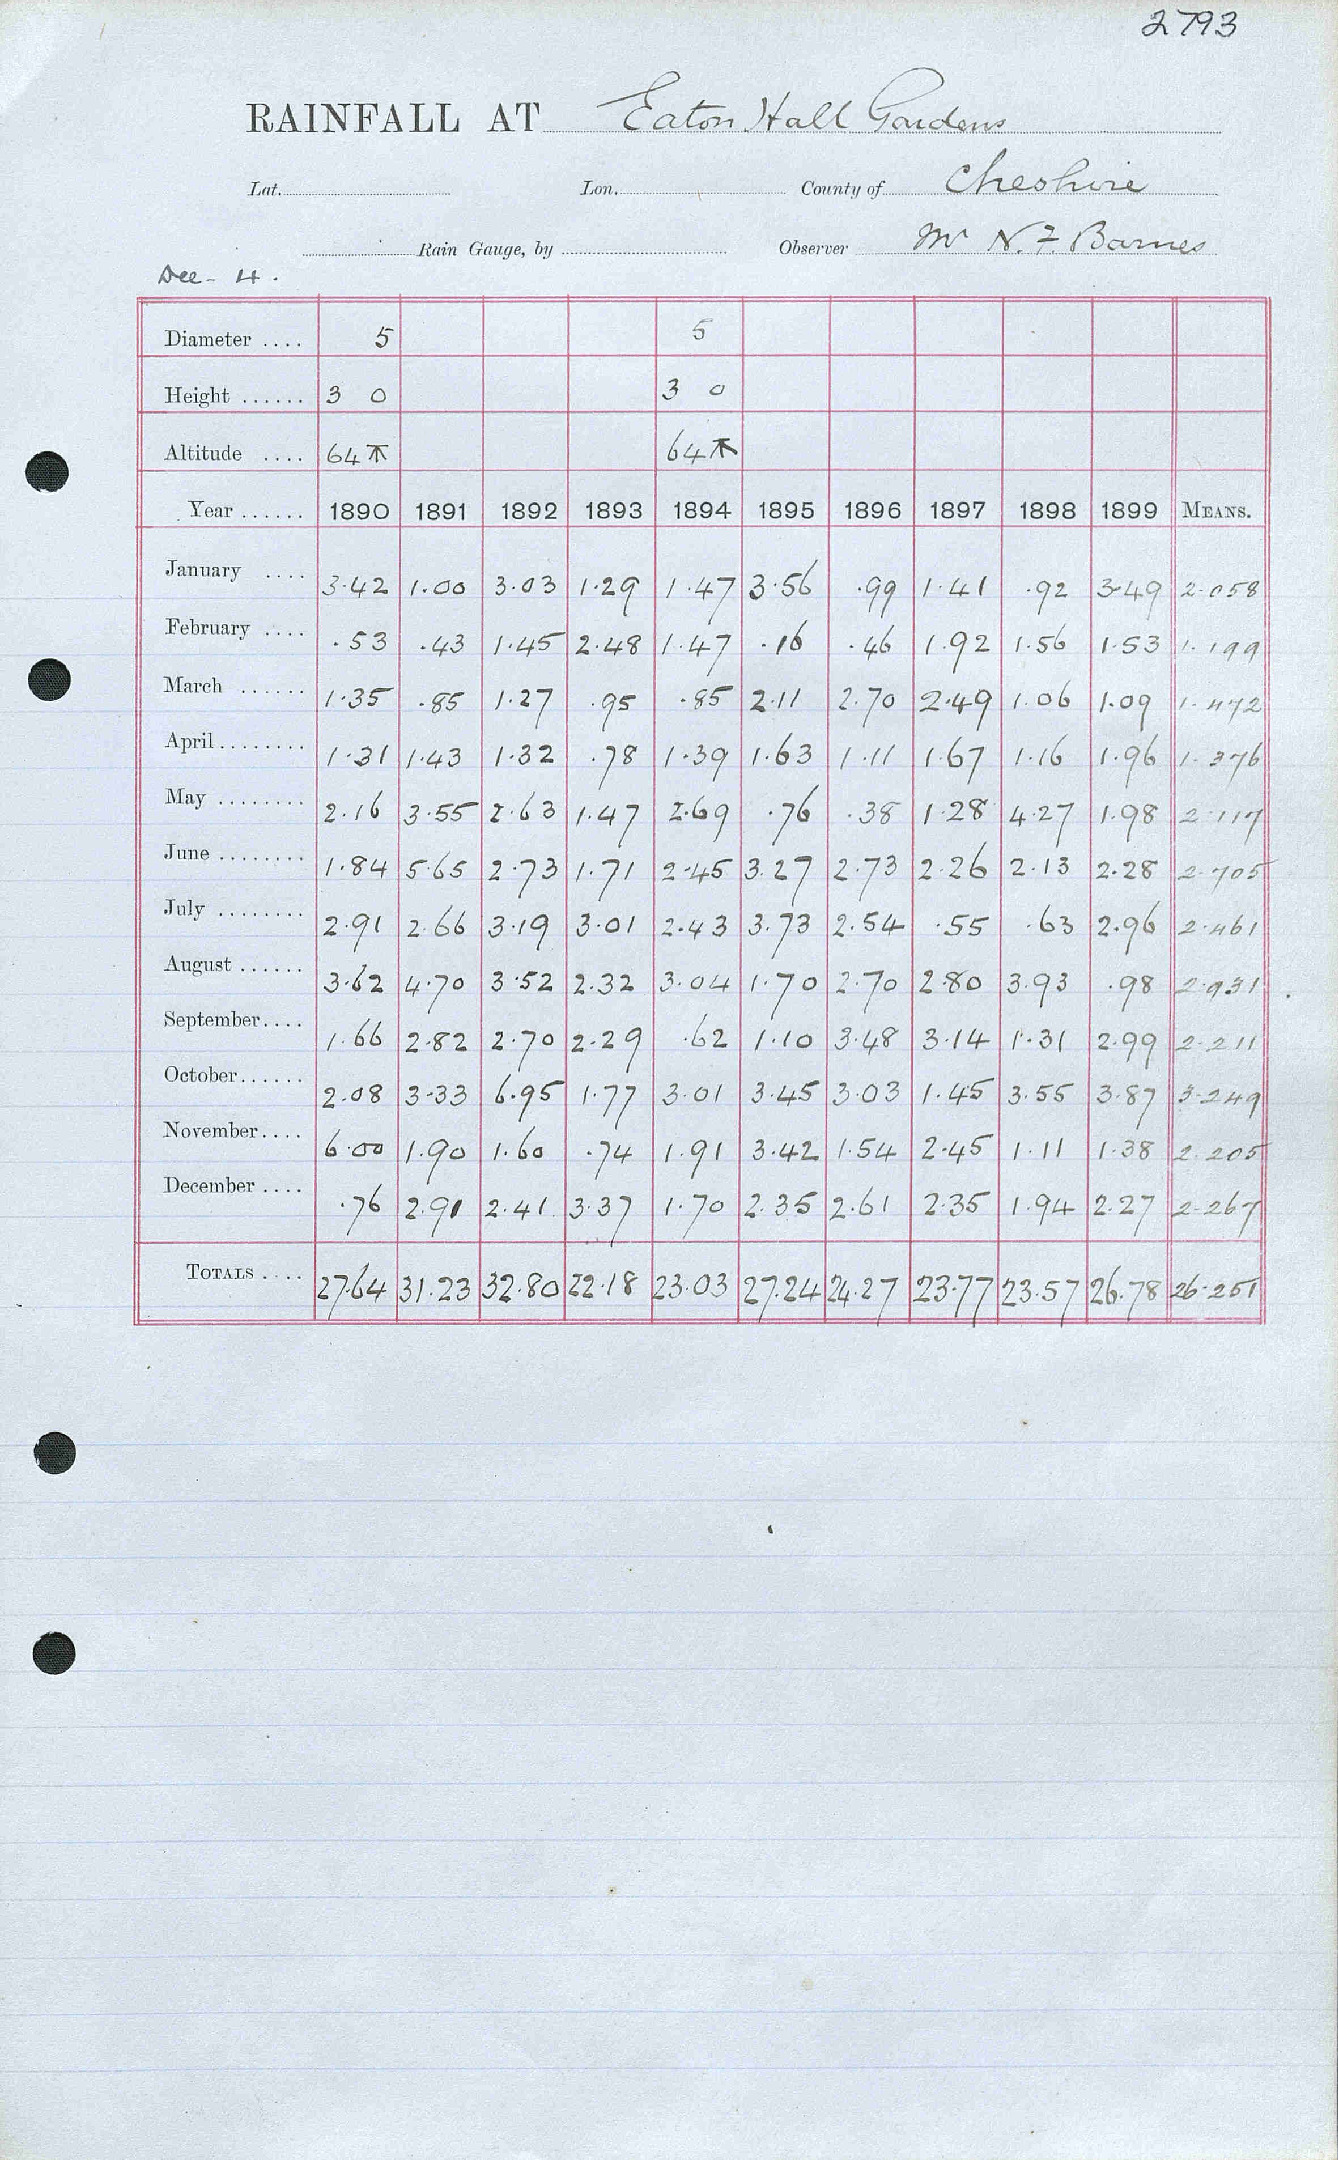 2793
RAINFALL AT Eaton Hall Gardens
Lat. Lon. County of Cheshire
Rain Gauge, by Observer Mr N. F. Barnes
Dec - 4.
Diameter .... 5 5
Height ...... 3 0 3 0
Altitude .... 64 ⊼ 64 ⊼
Year ...... 1890 1891 1892 1893 1894 1895 1896 1897 1898 1899 MEANS.
January .... 3.42 1.00 3.03 1.29 1.47 3.56 .99 1.41 .92 3.49 2.058
February .... .53 .43 1.45 2.48 1.47 .16 .46 1.92 1.56 1.53 1.199
March ...... 1.35 .85 1.27 .95 .85 2.11 2.70 2.49 1.06 1.09 1.472
April ........ 1.31 1.43 1.32 .78 1.39 1.63 1.11 1.67 1.16 1.96 1.376
May ........ 2.16 3.55 2.63 1.47 2.69 .76 .38 1.28 4.27 1.98 2.117
June ........ 1.84 5.65 2.73 1.71 2.45 3.27 2.73 2.26 2.13 2.28 2.705
July ........ 2.91 2.66 3.19 3.01 2.43 3.73 2.54 .55 .63 2.96 2.461
August ...... 3.62 4.70 3.52 2.32 3.04 1.70 2.70 2.80 3.93 .98 2.931
September .... 1.66 2.82 2.70 2.29 .62 1.10 3.48 3.14 1.31 2.99 2.211
October ...... 2.08 3.33 6.95 1.77 3.01 3.45 3.03 1.45 3.55 3.87 3.249
November .... 6.00 1.90 1.60 .74 1.91 3.42 1.54 2.45 1.11 1.38 2.205
December .... .76 2.91 2.41 3.37 1.70 2.35 2.61 2.35 1.94 2.27 2.267
TOTALS .... 27.64 31.23 32.80 22.18 23.03 27.24 24.27 23.77 23.57 26.78 26.251